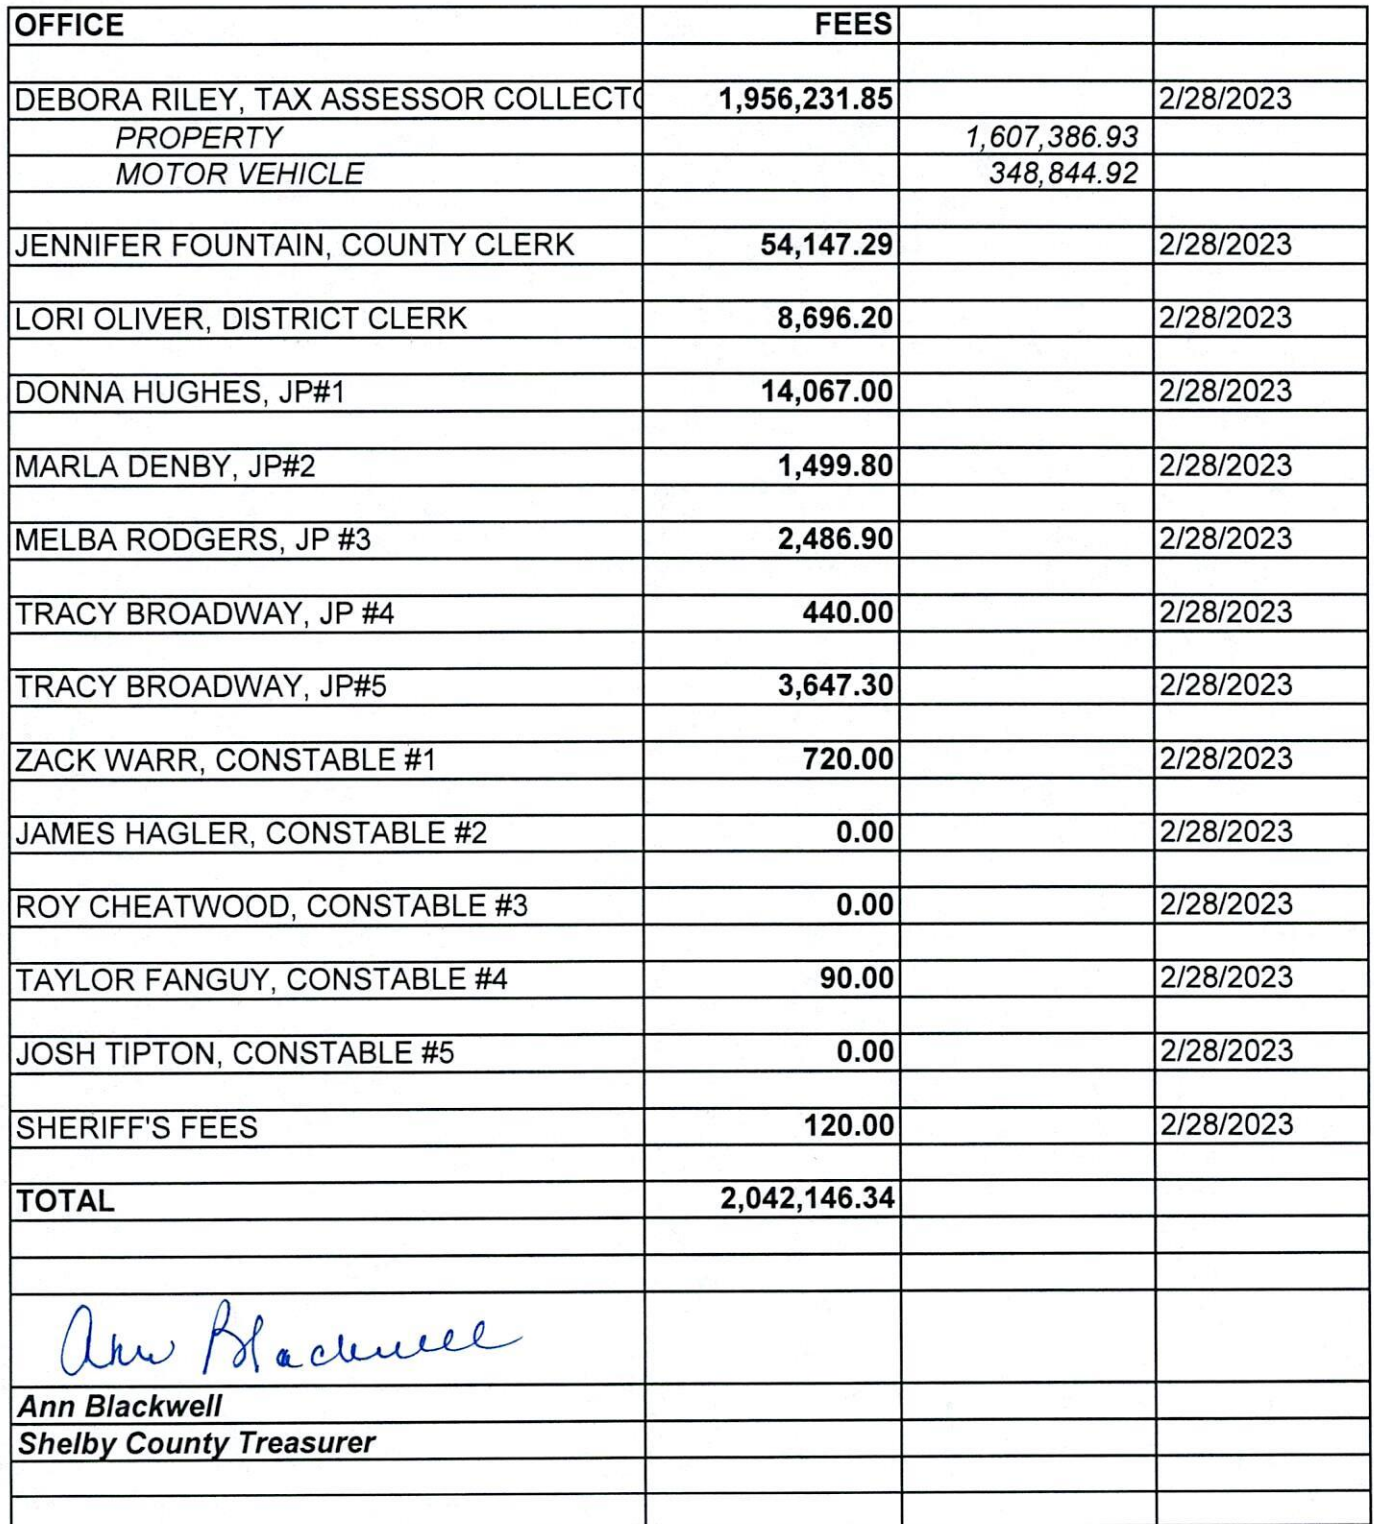 OFFICE FEES
DEBORA RILEY, TAX ASSESSOR COLLECTO 1,956,231.85 2/28/2023
PROPERTY 1,607,386.93
MOTOR VEHICLE 348,844.92
JENNIFER FOUNTAIN, COUNTY CLERK 54,147.29 2/28/2023
LORI OLIVER, DISTRICT CLERK 8,696.20 2/28/2023
DONNA HUGHES, JP#1 14,067.00 2/28/2023
MARLA DENBY, JP#2 1,499.80 2/28/2023
MELBA RODGERS, JP #3 2,486.90 2/28/2023
TRACY BROADWAY, JP #4 440.00 2/28/2023
TRACY BROADWAY, JP#5 3,647.30 2/28/2023
ZACK WARR, CONSTABLE #1 720.00 2/28/2023
JAMES HAGLER, CONSTABLE #2 0.00 2/28/2023
ROY CHEATWOOD, CONSTABLE #3 0.00 2/28/2023
TAYLOR FANGUY, CONSTABLE #4 90.00 2/28/2023
JOSH TIPTON, CONSTABLE #5 0.00 2/28/2023
SHERIFF'S FEES 120.00 2/28/2023
TOTAL 2,042,146.34
Ann Blackwell
Ann Blackwell
Shelby County Treasurer